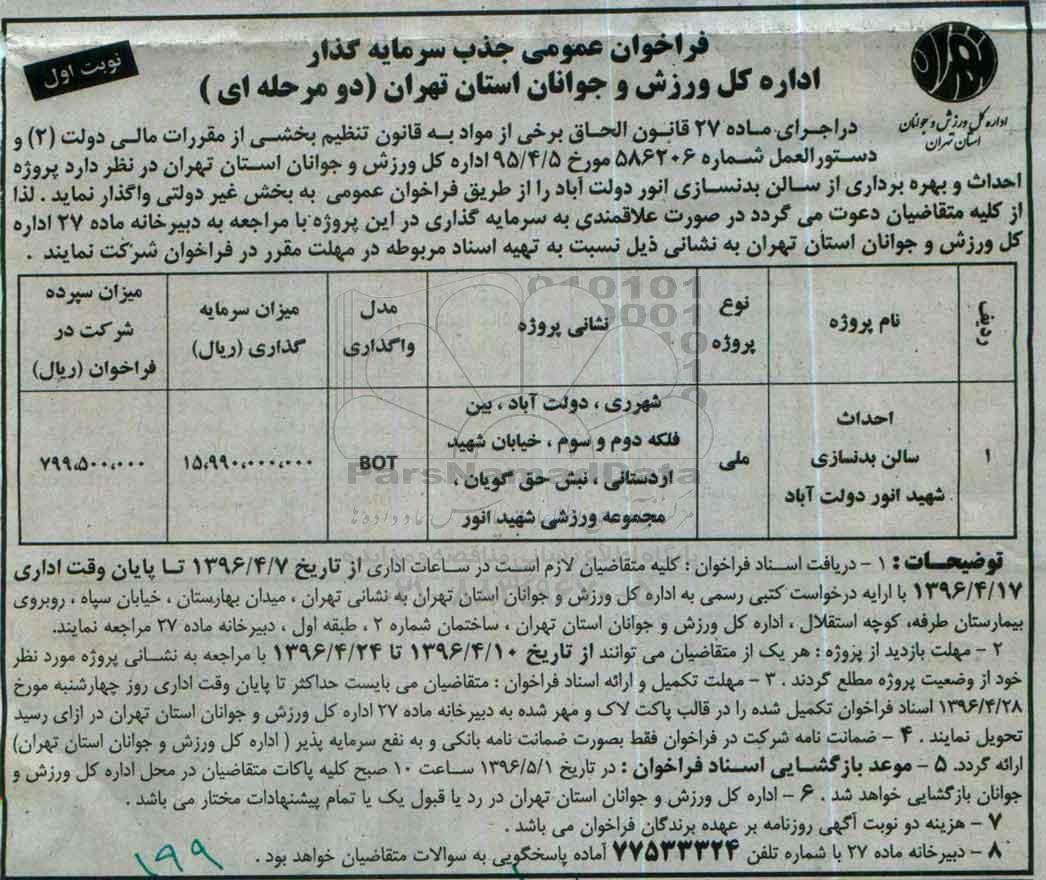 نوبت اول
فراخوان عمومی جذب سرمایه گذار
اداره کل ورزش و جوانان استان تهران (دو مرحله ای )
اداره کل ورزش و جوانان
استان تهران
دراجرای ماده ۲۷ قانون الحاق برخی از مواد به قانون تنظیم بخشی از مقررات مالی دولت (۲) و
دستورالعمل شماره ۵۸۶۲۰۶ مورخ ۹۵/۴/۵ اداره کل ورزش و جوانان استان تهران در نظر دارد پروژه
احداث و بهره برداری از سالن بدنسازی انور دولت آباد را از طریق فراخوان عمومی به بخش غیر دولتی واگذار نماید . لذا
از کلیه متقاضیان دعوت می گردد در صورت علاقمندی به سرمایه گذاری در این پروژه با مراجعه به دبیرخانه ماده ۲۷ اداره
کل ورزش و جوانان استان تهران به نشانی ذیل نسبت به تهیه اسناد مربوطه در مهلت مقرر در فراخوان شرکت نمایند .
ردیف
نام پروژه
نوع
پروژه
نشانی پروژه
مدل
واگذاری
میزان سرمایه
گذاری (ریال)
میزان سپرده
شرکت در
فراخوان (ریال)
۱
احداث
سالن بدنسازی
شهید انور دولت آباد
ملی
شهرری ، دولت آباد ، بین
فلکه دوم و سوم ، خیابان شهید
اردستانی ، نبش حق گویان ،
مجموعه ورزشی شهید انور
BOT
۱۵،۹۹۰،۰۰۰،۰۰۰
۷۹۹،۵۰۰،۰۰۰
ParsNamadData
توضیحات : ۱ - دریافت اسناد فراخوان : کلیه متقاضیان لازم است در ساعات اداری از تاریخ ۱۳۹۶/۴/۷ تا پایان وقت اداری
۱۳۹۶/۴/۱۷ با ارایه درخواست کتبی رسمی به اداره کل ورزش و جوانان استان تهران به نشانی تهران ، میدان بهارستان ، خیابان سپاه ، روبروی
بیمارستان طرفه، کوچه استقلال ، اداره کل ورزش و جوانان استان تهران ، ساختمان شماره ۲ ، طبقه اول ، دبیرخانه ماده ۲۷ مراجعه نمایند.
۲ - مهلت بازدید از پروژه : هر یک از متقاضیان می توانند از تاریخ ۱۳۹۶/۴/۱۰ تا ۱۳۹۶/۴/۲۴ با مراجعه به نشانی پروژه مورد نظر
خود از وضعیت پروژه مطلع گردند . ۳ - مهلت تکمیل و ارائه اسناد فراخوان : متقاضیان می بایست حداکثر تا پایان وقت اداری روز چهارشنبه مورخ
۱۳۹۶/۴/۲۸ اسناد فراخوان تکمیل شده را در قالب پاکت لاک و مهر شده به دبیرخانه ماده ۲۷ اداره کل ورزش و جوانان استان تهران در ازای رسید
تحویل نمایند . ۴ - ضمانت نامه شرکت در فراخوان فقط بصورت ضمانت نامه بانکی و به نفع سرمایه پذیر ( اداره کل ورزش و جوانان استان تهران)
ارائه گردد. ۵ - موعد بازگشایی اسناد فراخوان : در تاریخ ۱۳۹۶/۵/۱ ساعت ۱۰ صبح کلیه پاکات متقاضیان در محل اداره کل ورزش و
جوانان بازگشایی خواهد شد . ۶ - اداره کل ورزش و جوانان استان تهران در رد یا قبول یک یا تمام پیشنهادات مختار می باشد .
۷ - هزینه دو نوبت آگهی روزنامه بر عهده برندگان فراخوان می باشد .
۸ - دبیرخانه ماده ۲۷ با شماره تلفن ۷۷۵۳۳۳۲۴ آماده پاسخگویی به سوالات متقاضیان خواهد بود .
۱۹۹